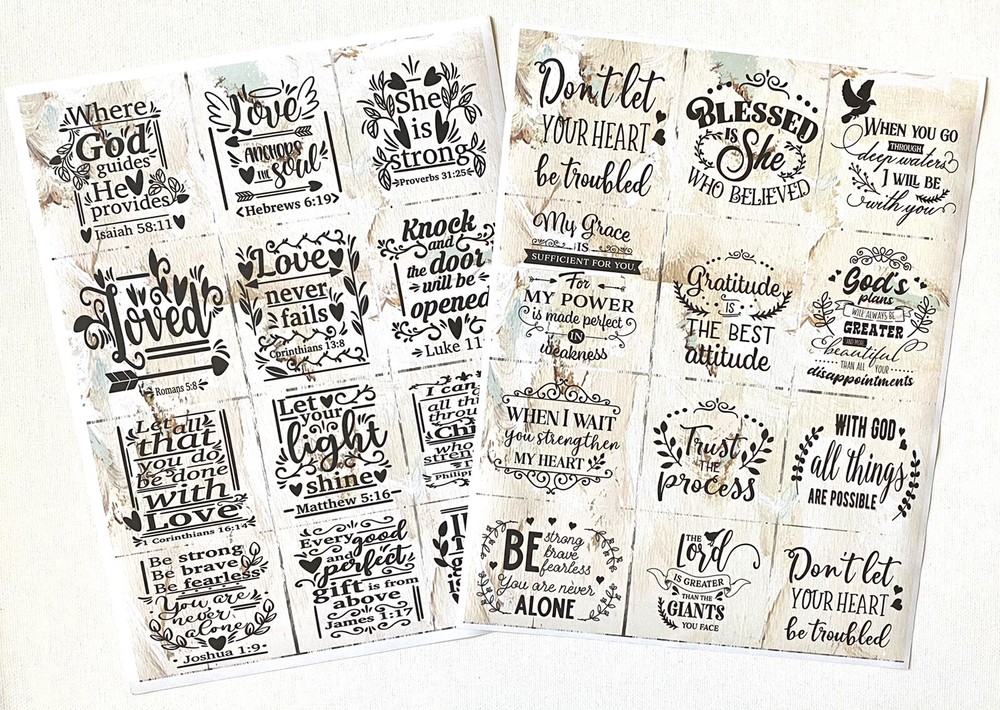 Where
God
guides
He
provides
Isaiah 58:11
Love
ANCHORS
THE soul
Hebrews 6:19
She
is
strong
Proverbs 31:25
Loved
Romans 5:8
Love
never
fails
Corinthians 13:8
Knock
and
the door
will be
opened
Luke 11
Let all
that
you do
be done
with
Love
1 Corinthians 16:14
Let
your
light
shine
Matthew 5:16
I can
all th
throu
who
stren
Philipp
Be strong
Be brave
Be fearless
You are
never
alone
Joshua 1:9
Every good
and
perfect
gift is from
above
James 1:17
Don't let
YOUR HEART
be troubled
BLESSED
IS She
WHO BELIEVED
WHEN YOU GO
THROUGH
deep waters
I WILL BE
with you
My Grace
IS
SUFFICIENT FOR YOU,
For
MY POWER
is made perfect
IN
weakness
Gratitude
IS
THE BEST
attitude
God's
plans
WILL ALWAYS BE
GREATER
AND MORE
beautiful
THAN ALL YOUR
disappointments
WHEN I WAIT
you strengthen
MY HEART
Trust
THE
process
WITH GOD
all things
ARE POSSIBLE
BE strong
brave
fearless
You are never
ALONE
THE
Lord
IS GREATER
THAN THE
GIANTS
YOU FACE
Don't let
YOUR HEART
be troubled